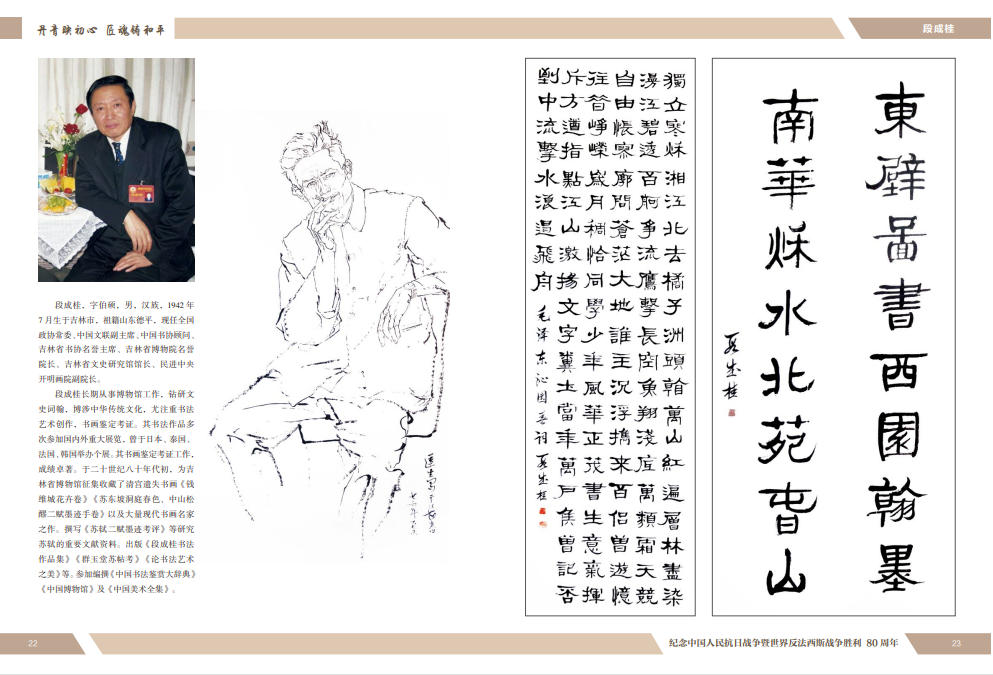 丹青映初心 匠魂铸和平
段成桂
段成桂，字伯硕，男，汉族，1942 年
7 月生于吉林市，祖籍山东德平，现任全国
政协常委、中国文联副主席、中国书协顾问、
吉林省书协名誉主席、吉林省博物院名誉
院长、吉林省文史研究馆馆长、民进中央
开明画院副院长。
段成桂长期从事博物馆工作，钻研文
史词翰，博涉中华传统文化，尤注重书法
艺术创作，书画鉴定考证。其书法作品多
次参加国内外重大展览，曾于日本、泰国、
法国、韩国举办个展。其书画鉴定考证工作，
成绩卓著。于二十世纪八十年代初，为吉
林省博物馆征集收藏了清宫遗失书画《钱
维城花卉卷》《苏东坡洞庭春色、中山松
醪二赋墨迹手卷》以及大量现代书画名家
之作。撰写《苏轼二赋墨迹考评》等研究
苏轼的重要文献资料。出版《段成桂书法
作品集》《群玉堂苏帖考》《论书法艺术
之美》等。参加编撰《中国书法鉴赏大辞典》
《中国博物馆》及《中国美术全集》。
獨立寒秌湘江北去橘子洲頭看萬山紅遍層林盡染
漫江碧透百舸爭流鷹擊長空魚翔淺底萬類霜天競
自由悵寥廓問蒼茫大地誰主沉浮攜來百侶曾遊憶
往昔崢嶸歲月稠恰同學少年風華正茂書生意氣揮
斥方遒指點江山激揚文字糞土當年萬戶侯曾記否
到中流擊水浪遏飛舟 毛澤東沁園春詞 段成桂
東壁啚書西園翰墨
南華秌水北苑萅山
段成桂
22
纪念中国人民抗日战争暨世界反法西斯战争胜利 80 周年
23